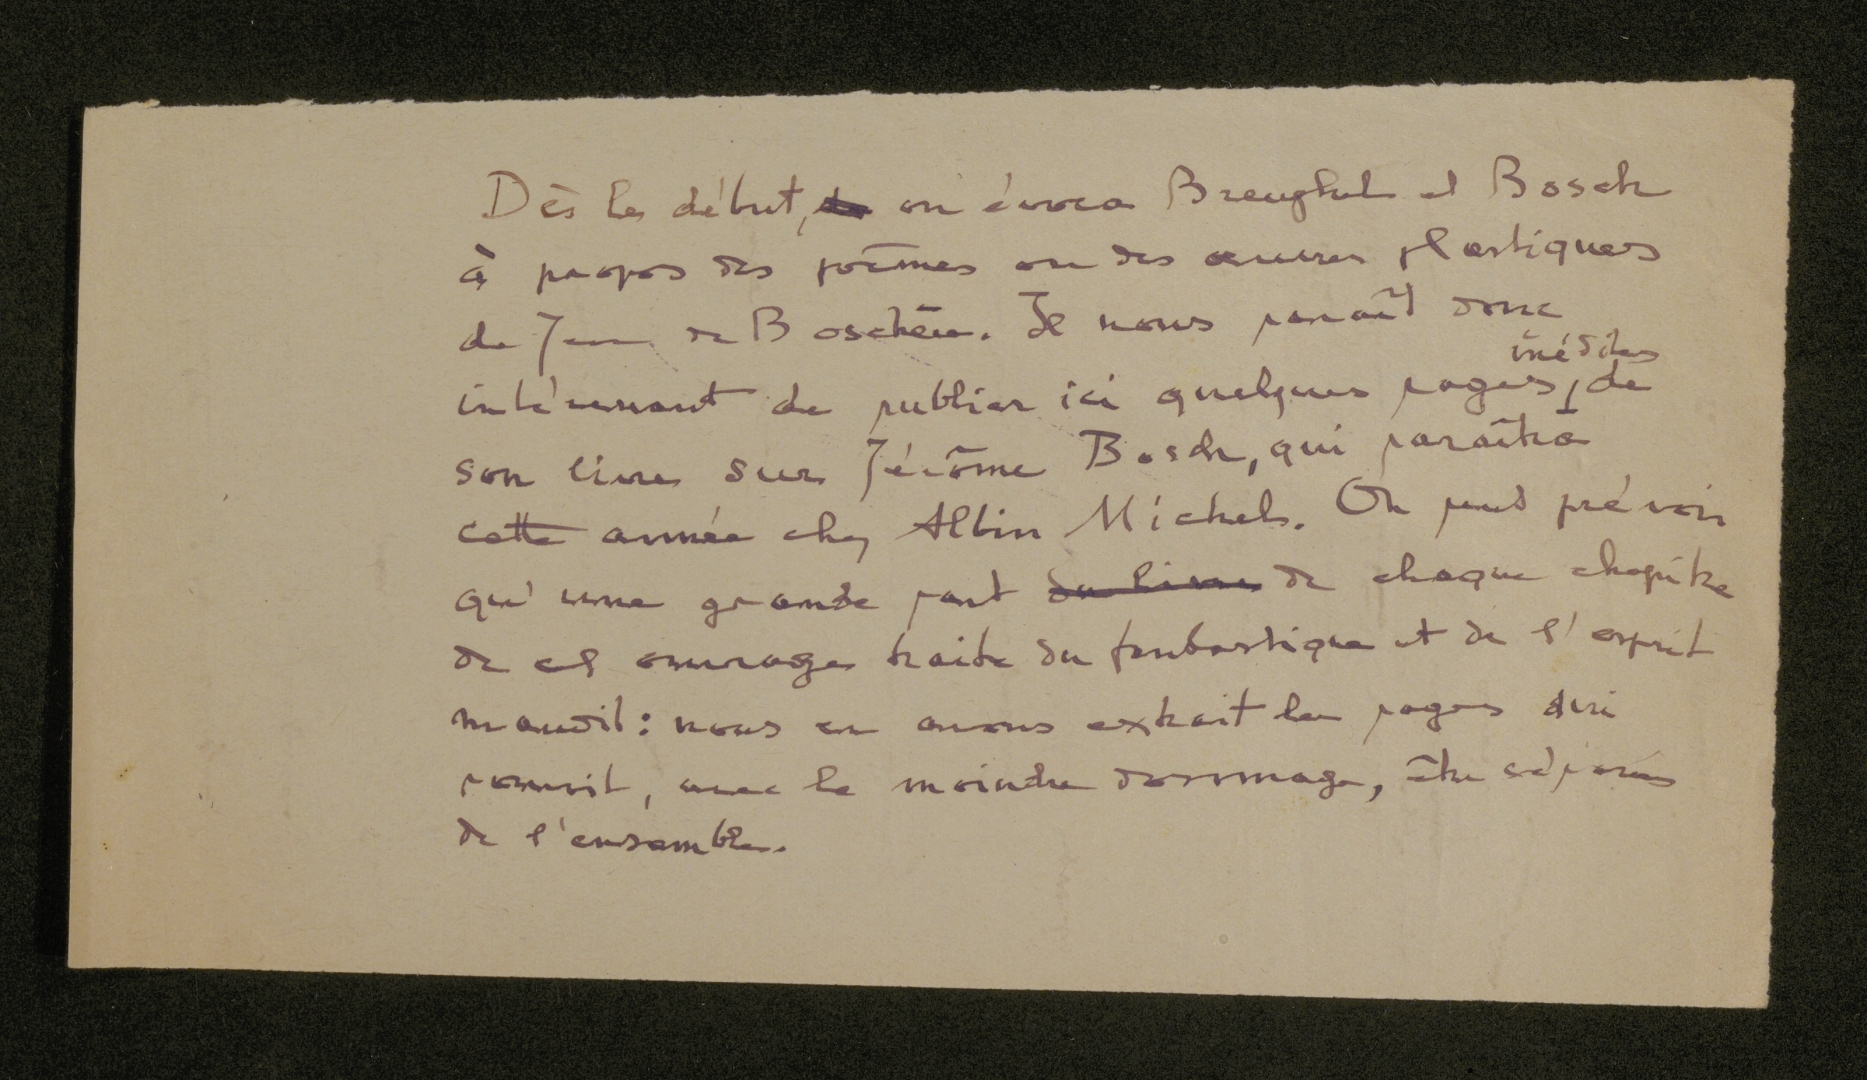 Dès le début, on évoca Breughel et Bosch
à propos des poèmes ou des œuvres plastiques
de Jean de Boschère. Il nous paraît donc
inédites
intéressant de publier ici quelques pages, de
son livre sur Jérôme Bosch, qui paraîtra
cette année chez Albin Michel. On peut prévoir
qu'une grande part du livre de chaque chapitre
de cet ouvrage traite du fantastique et de l'esprit
maudit : nous en avons extrait les pages qui
pouvait, avec le moindre dommage, être séparées
de l'ensemble.